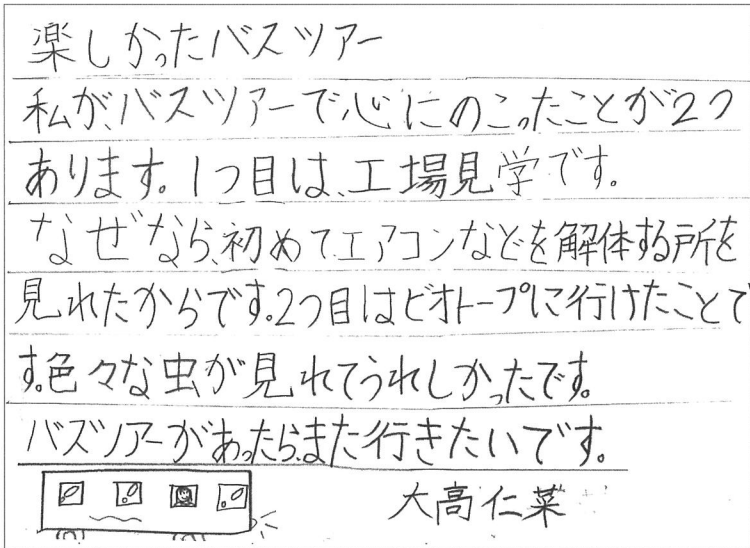 楽しかったバスツアー
私が、バスツアーで心にのこったことが2つ
あります。1つ目は、工場見学です。
なぜなら、初めてエアコンなどを解体する所を
見れたからです。2つ目はビオトープに行けたことで
す。色々な虫が見れてうれしかったです。
バスツアーがあったら、また行きたいです。
大高仁菜